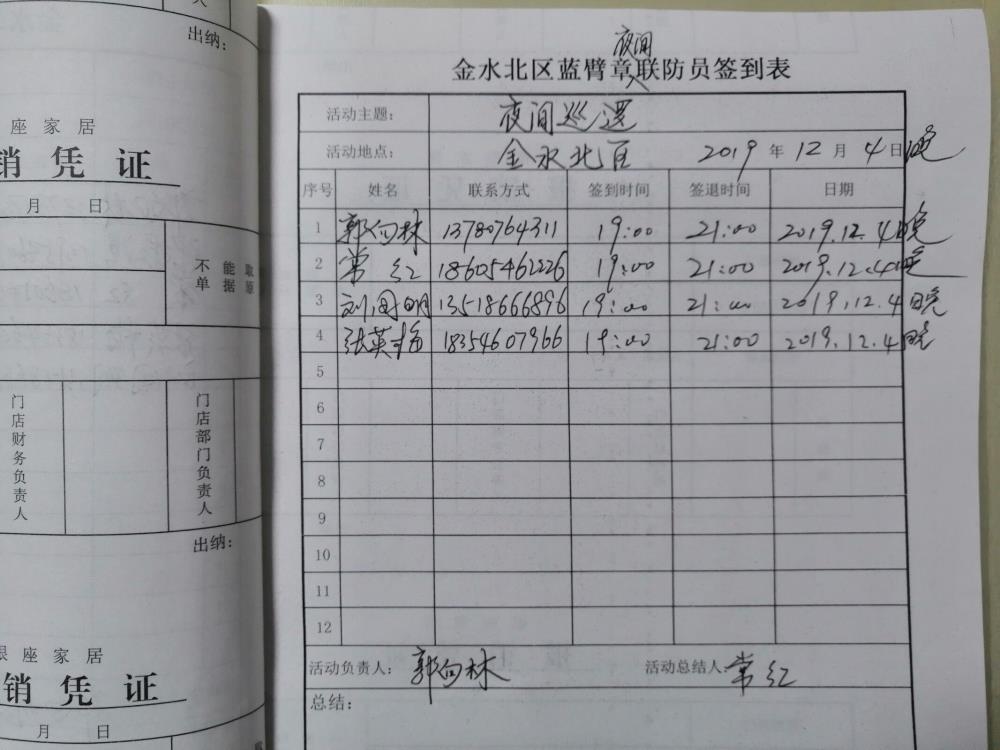 人
出纳：
座 家 居
销 凭 证
月 日
不 能 取
单 据 原
门店财务负责人
门店部门负责人
出纳：
银 座 家 居
销 凭 证
月 日
夜间
金水北区蓝臂章联防员签到表
活动主题： 夜间巡逻
活动地点： 金水北区 2019 年 12 月 4 日晚
序号 姓名 联系方式 签到时间 签退时间 日期
1 郭向林 13780764311 19:00 21:00 2019.12.4晚
2 常红 18605462226 19:00 21:00 2019.12.4晚
3 刘国明 13518666896 19:00 21:00 2019.12.4晚
4 张英梅 18354607966 19:00 21:00 2019.12.4晚
5
6
7
8
9
10
11
12
活动负责人： 郭向林 活动总结人： 常红
总结：